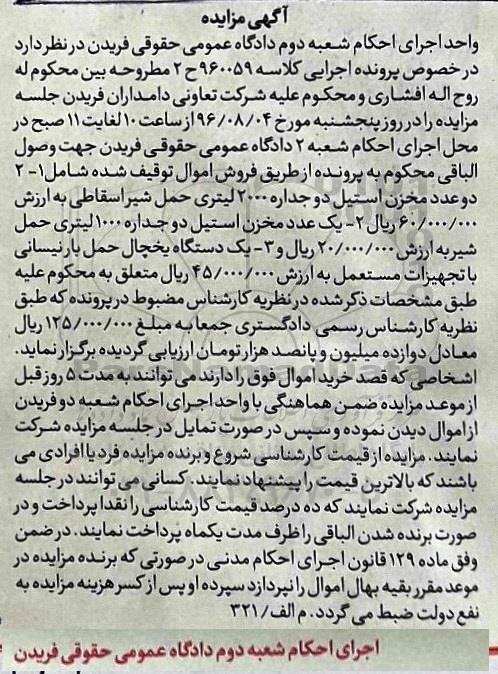 آگهی مزایده
واحد اجرای احکام شعبه دوم دادگاه عمومی حقوقی فریدن در نظر دارد
در خصوص پرونده اجرایی کلاسه ۹۶۰۰۵۹ ح ۲ مطروحه بین محکوم له
روح اله افشاری و محکوم علیه شرکت تعاونی دامداران فریدن جلسه
مزایده را در روز پنجشنبه مورخ ۹۶/۰۸/۰۴ از ساعت ۱۰ لغایت ۱۱ صبح در
محل اجرای احکام شعبه ۲ دادگاه عمومی حقوقی فریدن جهت وصول
الباقی محکوم به پرونده از طریق فروش اموال توقیف شده شامل ۱- ۲
دو عدد مخزن استیل دو جداره ۲۰۰۰ لیتری حمل شیر اسقاطی به ارزش
۶۰/۰۰۰/۰۰۰ ریال ۲- یک عدد مخزن استیل دو جداره ۱۰۰۰ لیتری حمل
شیر به ارزش ۲۰/۰۰۰/۰۰۰ ریال و ۳- یک دستگاه یخچال حمل بار نیسانی
با تجهیزات مستعمل به ارزش ۴۵/۰۰۰/۰۰۰ ریال متعلق به محکوم علیه
طبق مشخصات ذکر شده در نظریه کارشناس مضبوط در پرونده که طبق
نظریه کارشناس رسمی دادگستری جمعا به مبلغ ۱۲۵/۰۰۰/۰۰۰ ریال
معادل دوازده میلیون و پانصد هزار تومان ارزیابی گردیده برگزار نماید.
اشخاصی که قصد خرید اموال فوق را دارند می توانند به مدت ۵ روز قبل
از موعد مزایده ضمن هماهنگی با واحد اجرای احکام شعبه دو فریدن
از اموال دیدن نموده و سپس در صورت تمایل در جلسه مزایده شرکت
نمایند. مزایده از قیمت کارشناسی شروع و برنده مزایده فرد یا افرادی می
باشند که بالاترین قیمت را پیشنهاد نمایند. کسانی می توانند در جلسه
مزایده شرکت نمایند که ده درصد قیمت کارشناسی را نقدا پرداخت و در
صورت برنده شدن الباقی را ظرف مدت یکماه پرداخت نمایند. در ضمن
وفق ماده ۱۲۹ قانون اجرای احکام مدنی در صورتی که برنده مزایده در
موعد مقرر بقیه بهال اموال را نپردازد سپرده او پس از کسر هزینه مزایده به
نفع دولت ضبط می گردد. م الف/۳۲۱
اجرای احکام شعبه دوم دادگاه عمومی حقوقی فریدن